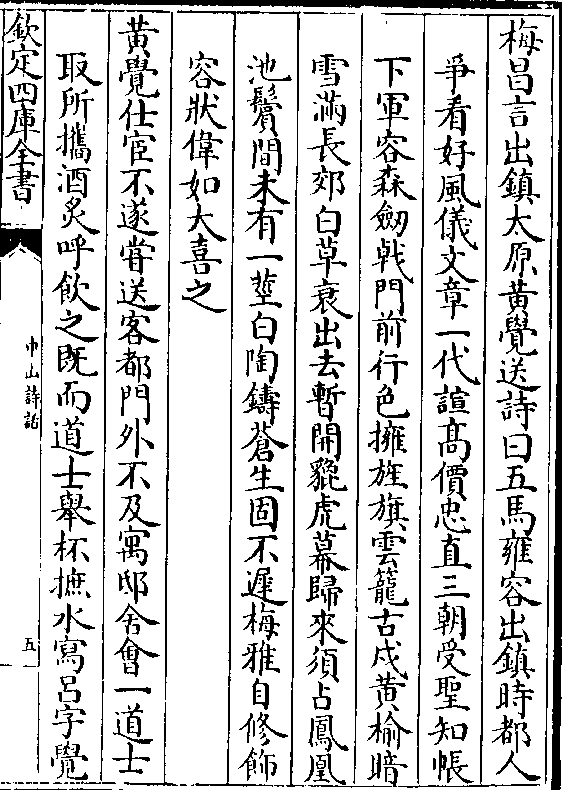 梅昌言出鎮太原黄覺送詩曰五馬雍容出鎮時都人
爭看好風儀文章一代諠髙價忠直三朝受聖知帳
下軍容森劒㦸門前行色擁旌旗雲籠古戍黄榆暗
雪滿長郊白草衰出去暫開貔虎幕歸來須占鳳凰
池鬢間未有一莖白陶鑄蒼生固不遲梅雅自修飾
容狀偉如大喜之
黄覺仕宦不遂甞送客都門外不及寓邸舍㑹一道士
取所攜酒炙呼飲之既而道士舉杯摭水寫吕字覺
欽定四庫全書
中山詩話
五